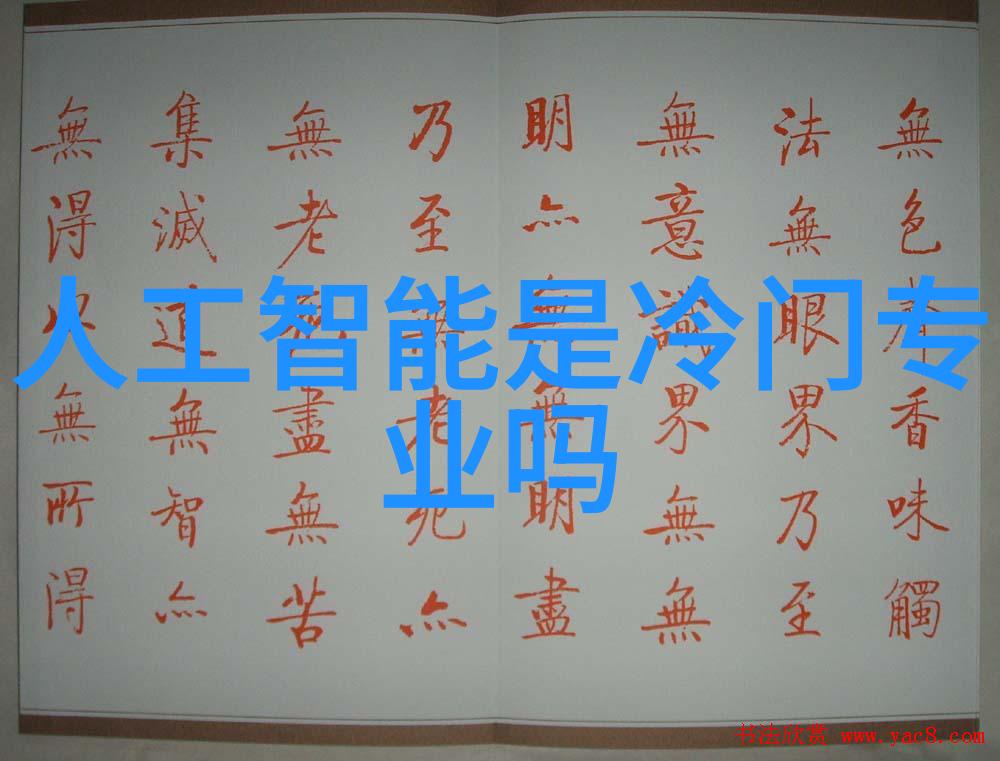 人工智能是冷门专
业吗
無色聲香味觸
法無眼界乃至
無意識界無無
明亦無無明盡
乃至無老死亦
無老死盡無苦
集滅道無智亦
無得以無所得
书法欣赏 www.yac8.com